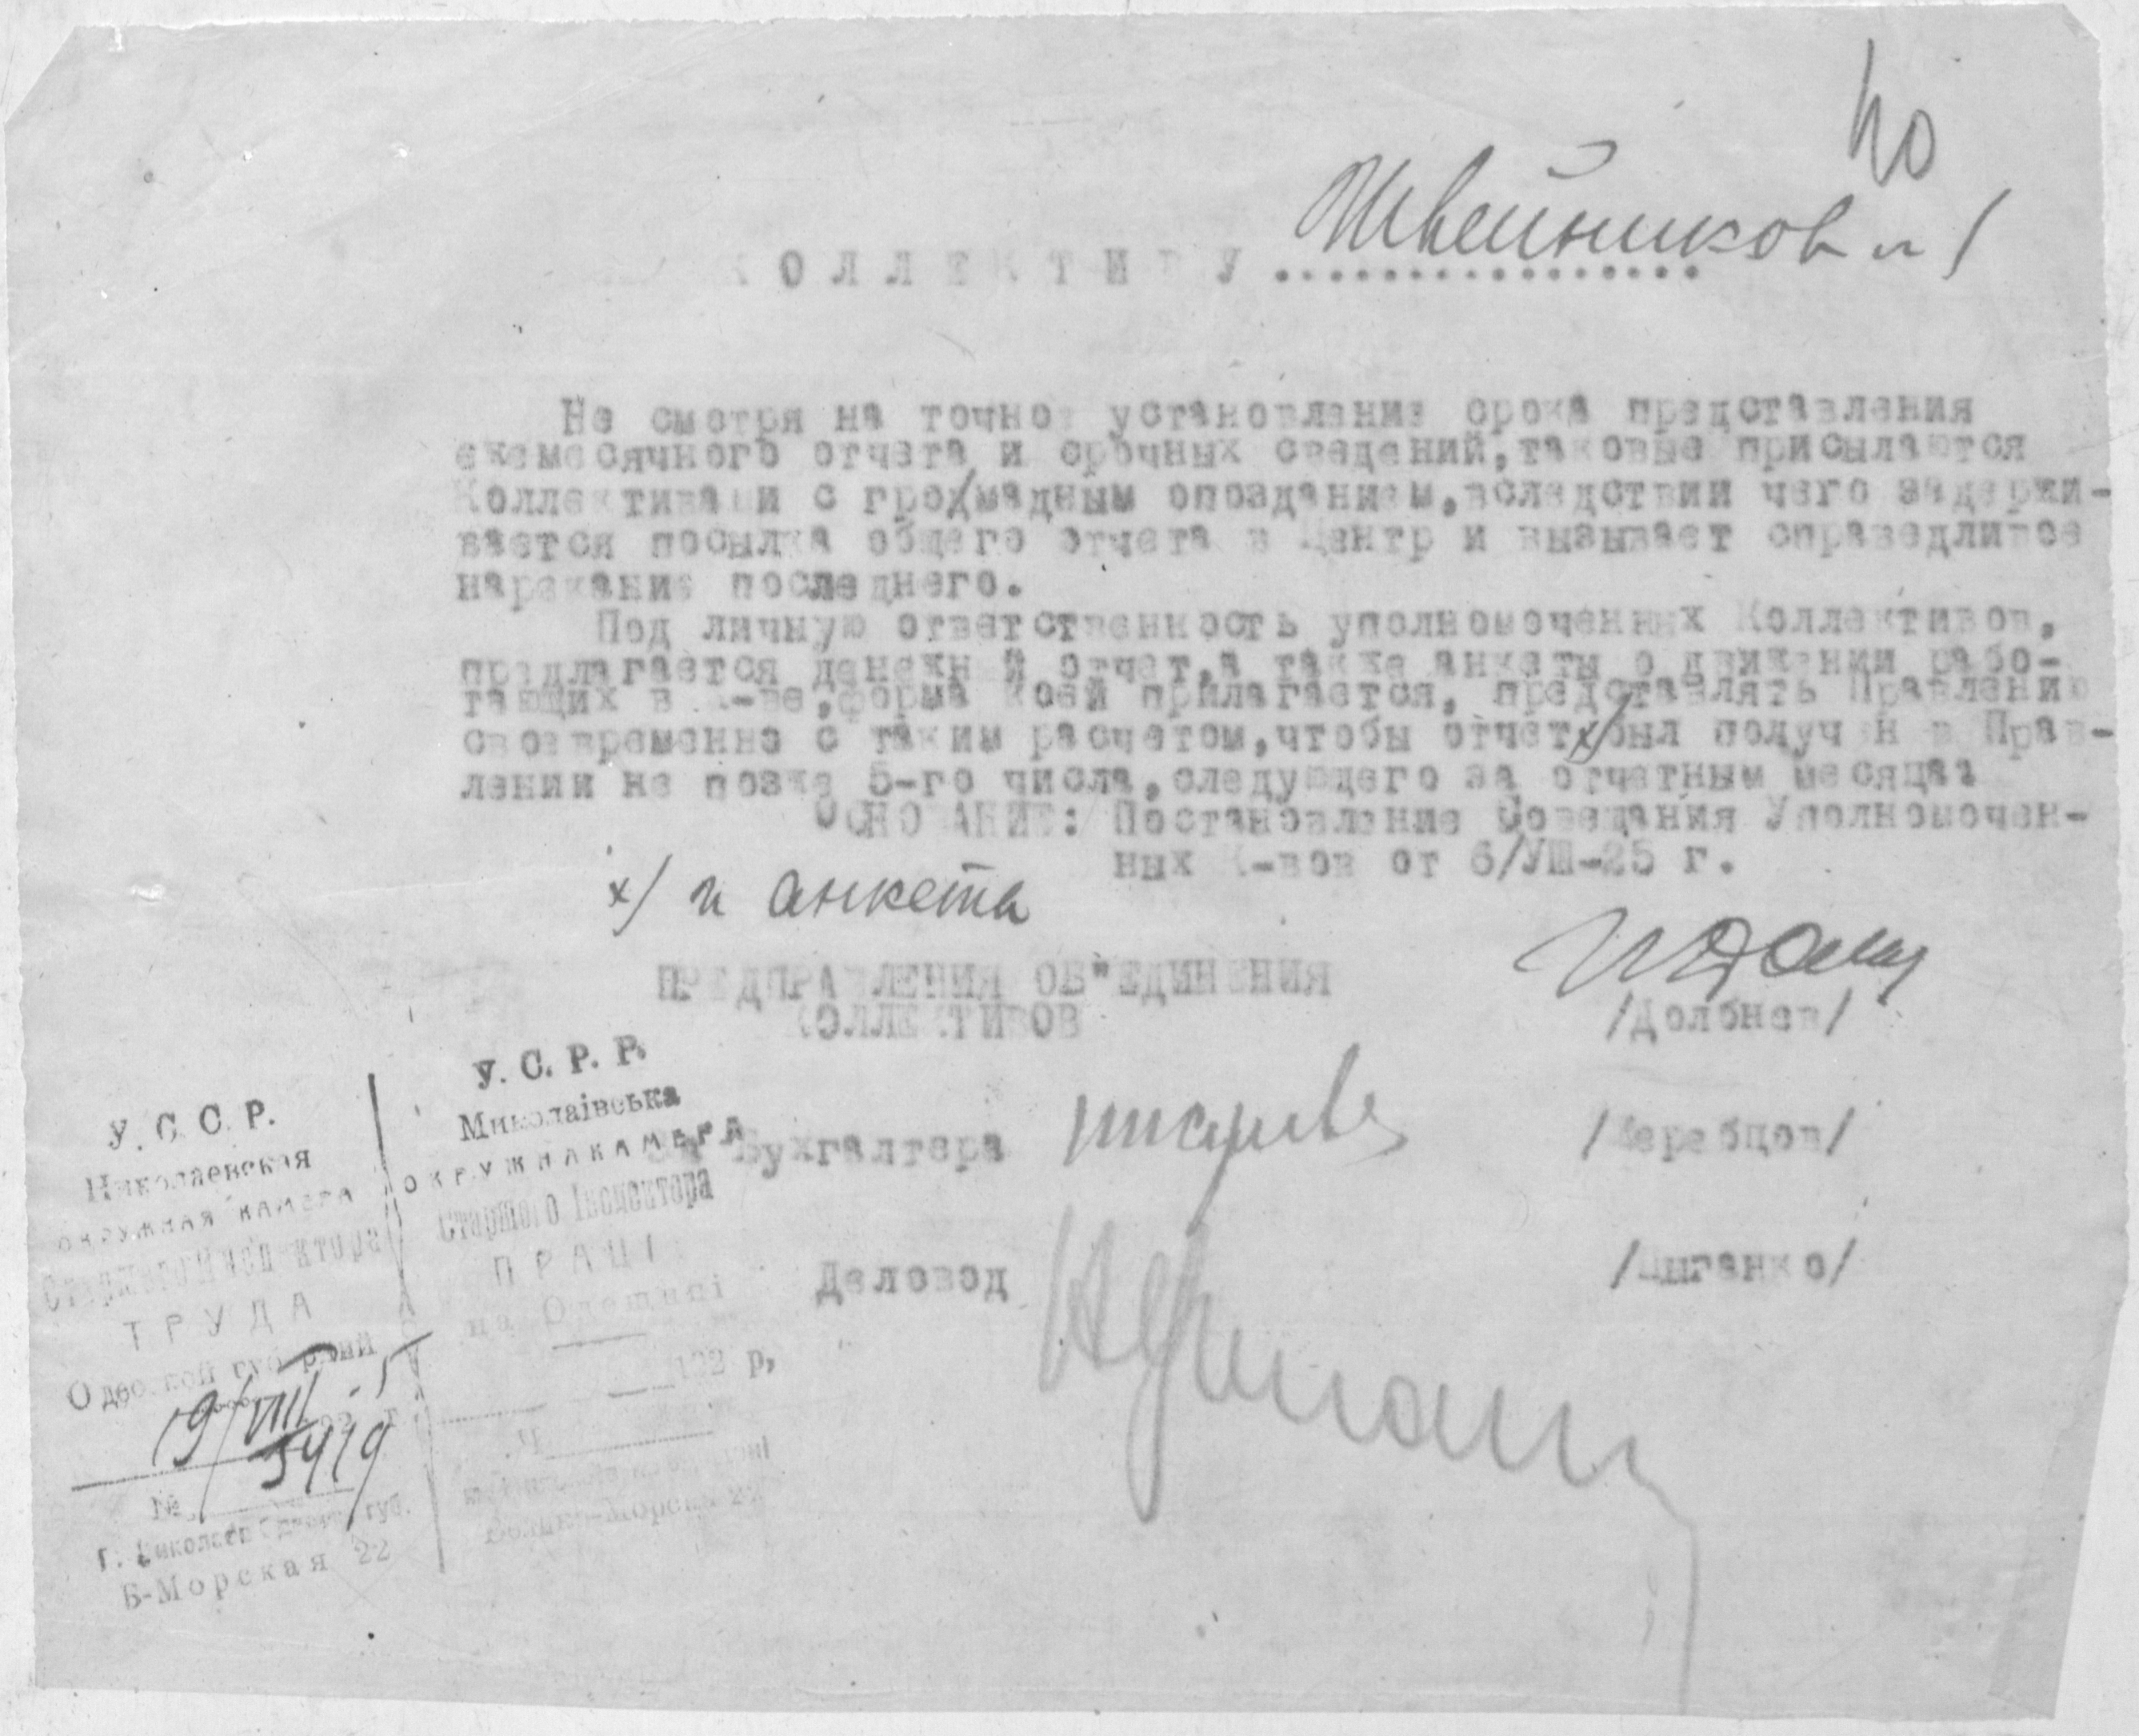 КОЛЛЕКТИВУ ................ Швейников
Не смотря на точное установление срока представления
ежемесячного отчета и срочных сведений,таковые присылаются
Коллективами с громадным опозданием,вследствии чего задержи-
вается посылка общего отчета в Центр и вызывает справедливое
нарекание последнего.
Под личную ответственность уполномоченных Коллективов,
предлагается денежный отчет,а также анкеты о движении рабо-
тающих в к-ве,форма коей прилагается, представлять Правлению
своевременно с таким расчетом,чтобы отчет х/ был получен в Прав-
лении не позже 5-го числа,следующего за отчетным месяца:
ОСНОВАНИЕ: Постановление Совещания Уполномочен-
ных К-вов от 6/УШ-25 г.
х/ и анкета
ПРЕДПРАВЛЕНИЯ ОБ"ЕДИНЕНИЯ
КОЛЛЕКТИВОВ
/Долбнев/
Бухгалтера
/Жеребцов/
Деловод
/Цыганко/
У. С. С. Р.
Николаевская
ОКРУЖНАЯ КАМЕРА
Старшего Инспектора
ТРУДА
Одесской губернии
19/VIII 5
5419
№
г. Николаев Одесской губ.
Б-Морская 22
У. С. Р. Р.
Миколаівська
ОКРУЖНА КАМЕРА
Старшого Інспектора
ПРАЦІ
на Одещині
192 р.
Ч.
Морська 22